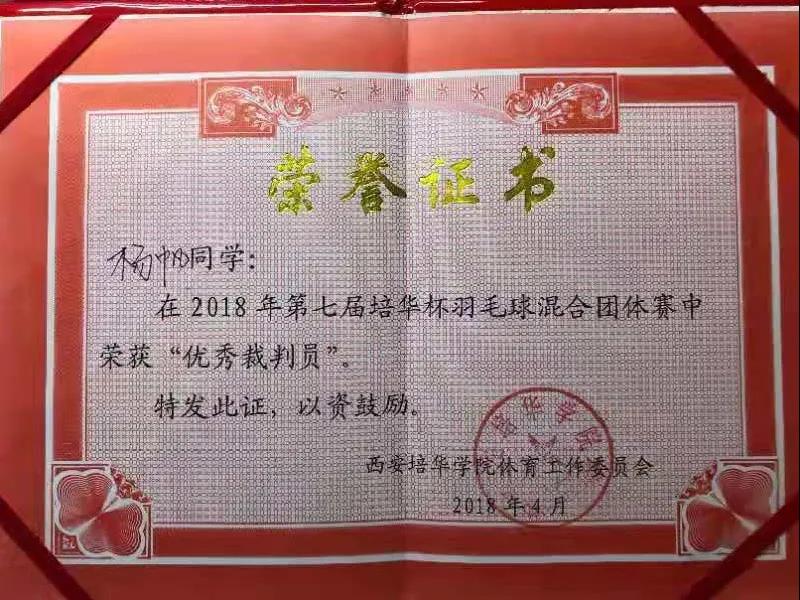 荣誉证书
杨帆同学：
在2018年第七届培华杯羽毛球混合团体赛中
荣获“优秀裁判员”。
特发此证，以资鼓励。
西安培华学院体育工作委员会
2018年4月